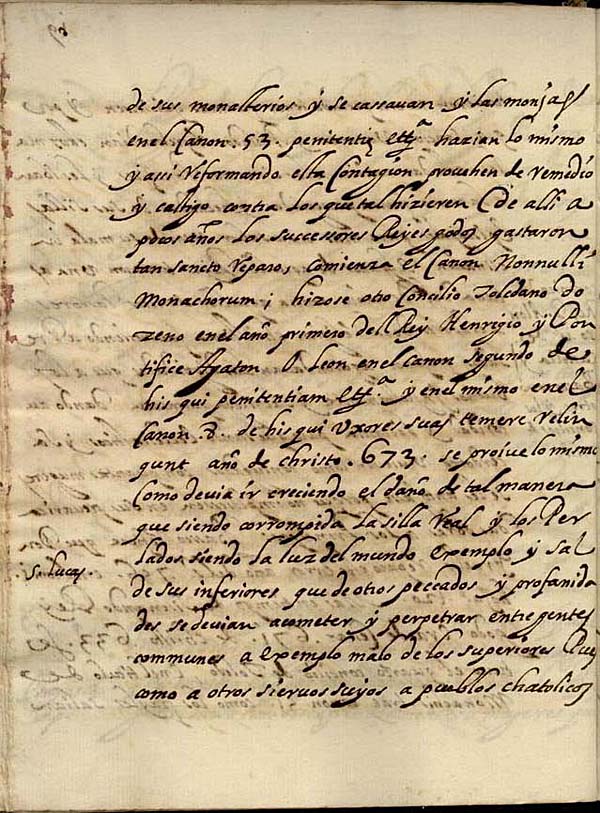 de sus monasterios y se cassauan y las monjas
en el Canon .53. penitentię ettª hazian lo mismo
y assi Reformando esta Contagion prouehen de Remedio
y castigo contra los que tal hizieren de alli a
pocos años los successores Reyes godos gastaron
tan sancto Reparo, comienza el Canon Nonnulli
Monachorum; hizose otro Concilio Toledano do
zeno en el año primero del Rey Henrigio y Pon
tifice Agaton O Leon en el canon segundo de
his qui penitentiam ettª. y en el mismo en el
Canon .8. de his qui Vxores suas temere relin
gunt año de christo .673. se proiue lo mismo
Como deuia ir creciendo el daño de tal manera
que siendo corrompida la silla Real y los Per
lados siendo la luz del mundo Exemplo y sal
S. Lucas.
de sus inferiores que de otros peccados y profanida
des se deuian acometer y perpetrar entre gentes
communes a Exemplo malo de los superiores Pues
como a otros sieruos suyos a pueblos chatolicos